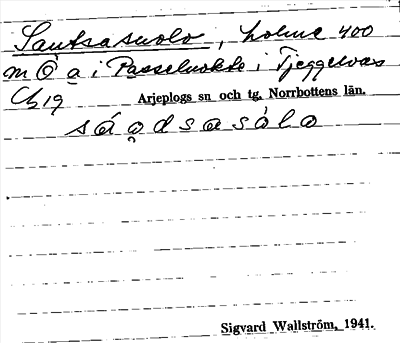 Sautsasuolo, holme 400
m Ö a i Passelnokke i Tjeggelvas
Cb 19 Arjeplogs sn och tg. Norrbottens län.
sáo̭dsasàla
Sigvard Wallström, 1941.